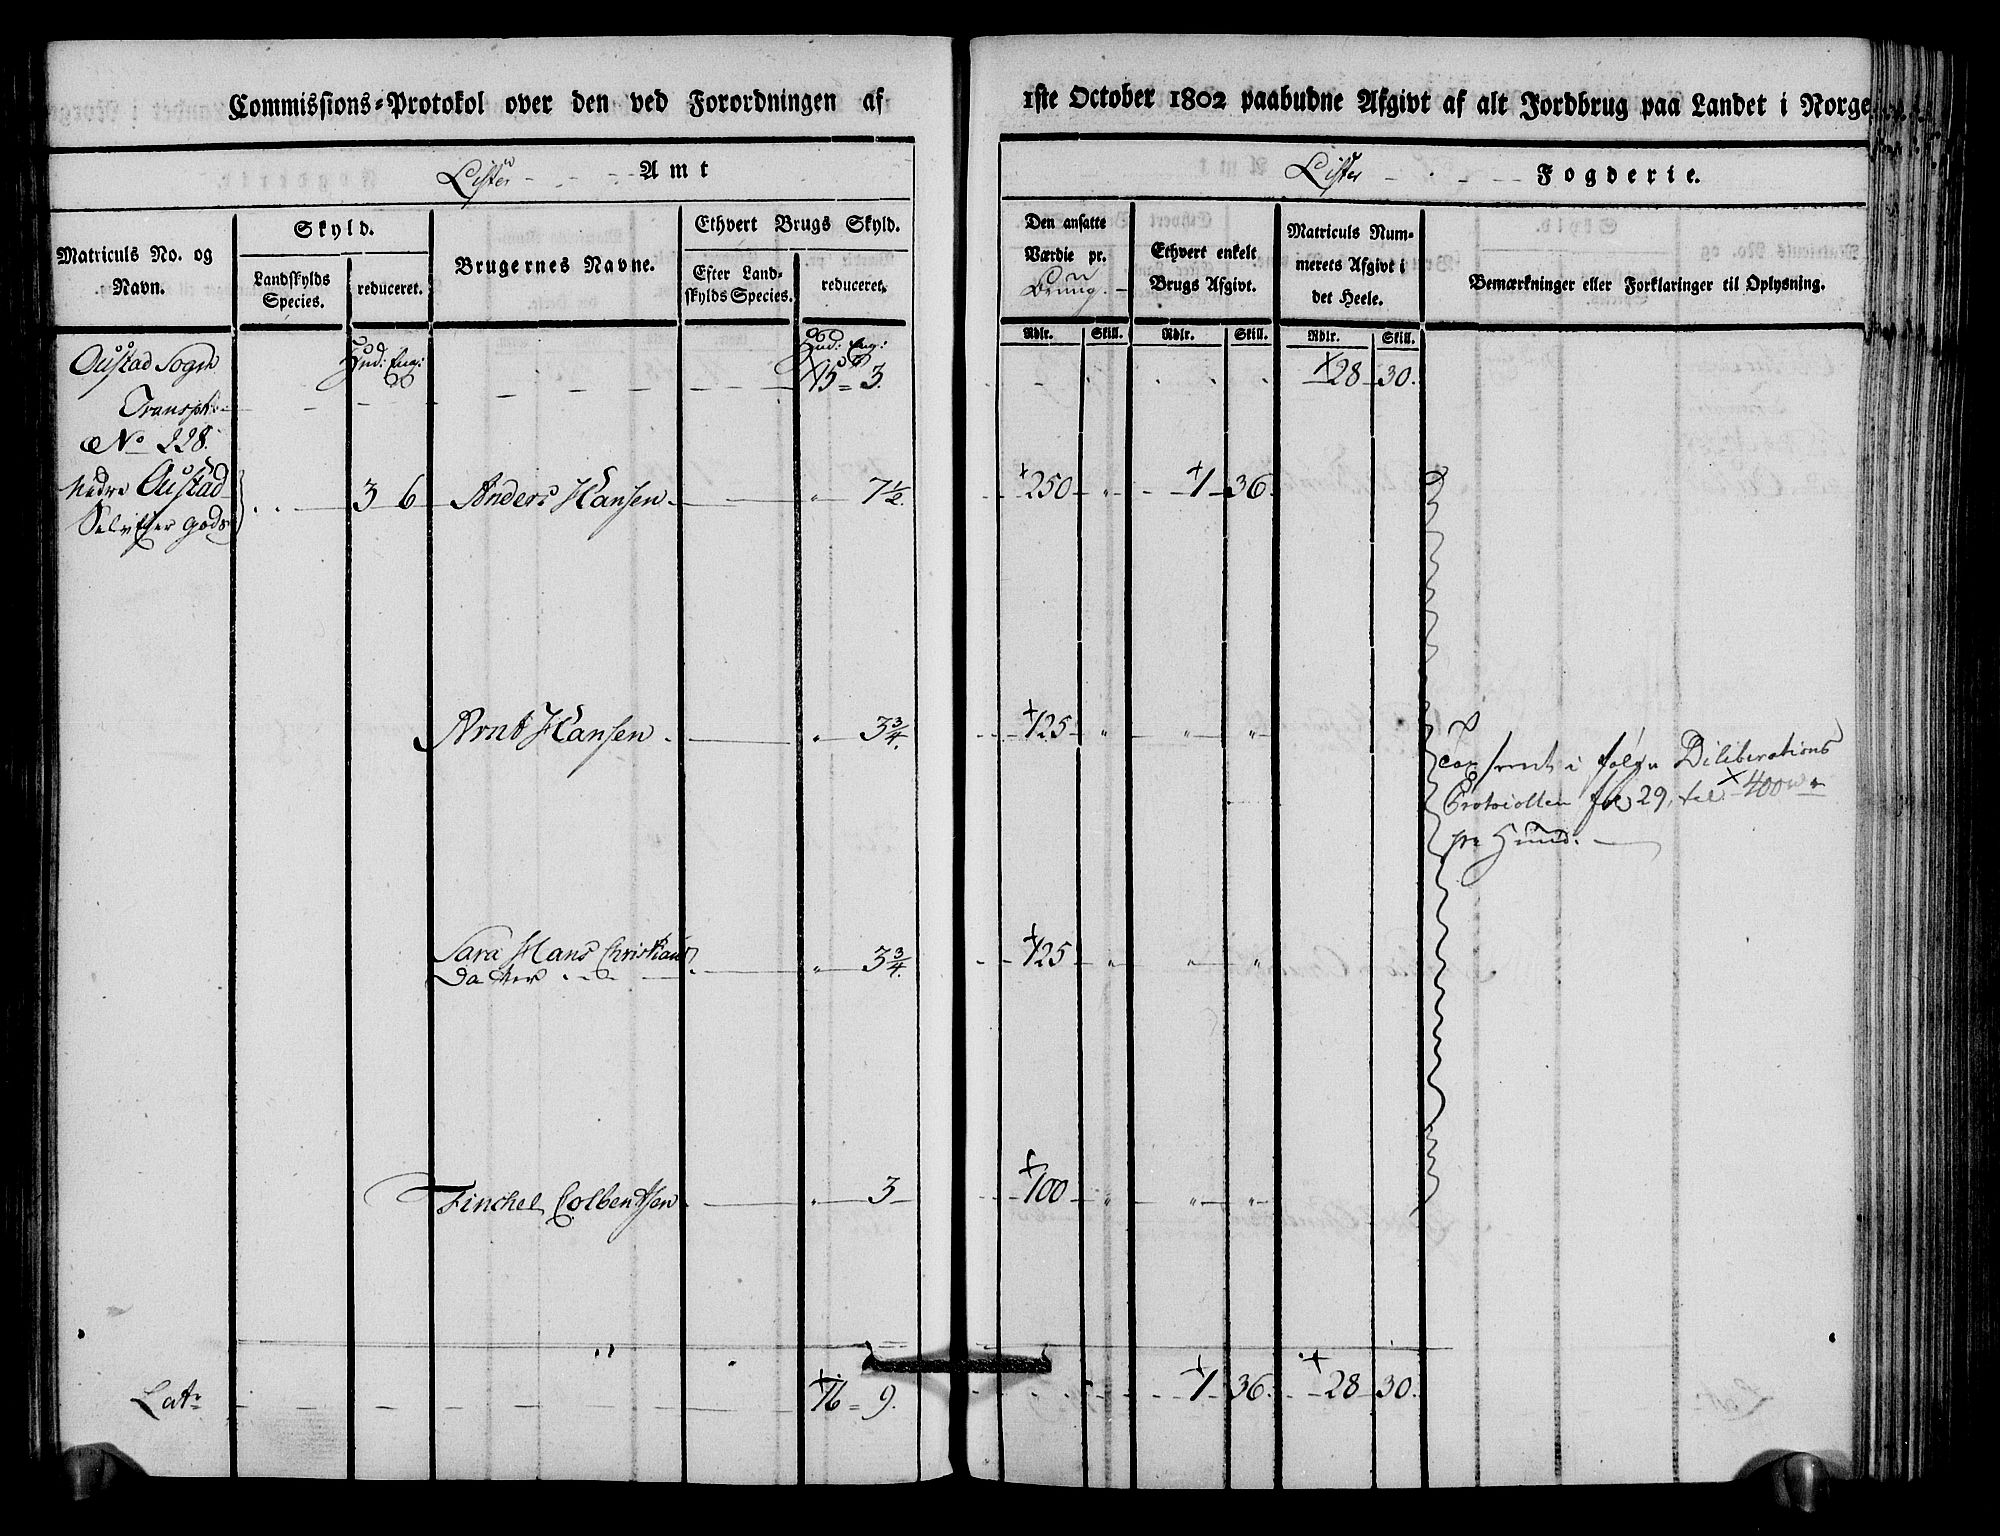 Commissions-Protokol over den ved Forordningen af 1ste October 1802 paabudne Afgivt af alt Jordbrug paa Landet i Norge
Lister Amt
Lister Fogderie.
Matriculs No. og Navn.
Skyld.
Landskylds Species.
reduceret.
Brugernes Navne.
Ethvert Brugs Skyld.
Efter Landskylds Species.
reduceret.
Den ansatte Værdie pr. Brug.
Ethvert enkelt Brugs Afgivt.
Matriculs Nummerets Afgivt i det Heele.
Bemærkninger eller Forklaringer til Oplysning.
Rdlr. Skill. Rdlr. Skill. Rdlr. Skill.
Oustad Sogn Hud: Eng: Hud: Eng:
Transpt 15 = 3. 28 30.
No 228.
Nedre Oustad 3 6 Anders Hansen 〃 7 1/2. 250 〃 1 36.
Selv Eier gods
Arnt Hansen 〃 3 3/4. 125 〃 〃 〃
Taxeret i følge Diliberations
Protocollen fol 29, til 400
pr Huud.
Sara Hans Christians 〃 3 3/4. 125 〃 〃 〃
Datter
Tinchel Colbentsen 〃 3 100 〃 〃 〃
Latr 16 = 9. 1 36. 28 30.